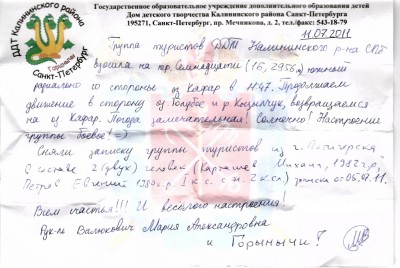 Государственное образовательное учреждение дополнительного образования детей
Дом детского творчества Калининского района Санкт-Петербурга
195271, Санкт-Петербург, пр. Мечникова, д. 2, тел./факс: 543-18-79
ДДТ Калининского района
Горыныч
Санкт-Петербург
11.07.2011
Группа туристов ДДТ Калининского р-на СПб
взошла на пер. Семнадцати (1Б, 2956м) южный
радиально со стороны оз Кафар в Н47. Продолжаем
движение в сторону оз. Голубое и р, возвращаемся
на оз Кафар. Погода замечательная! Солнечно! Настроение
группы боевое! =)
Сняли записку группы туристов из г. Пятигорска
в составе 2 (двух) человек (Карташев Михаил, 1982 г.р.,
Петров Евгений 1989 г.р. I к.с. и 2 к.с) записка от 05..11.
Всем счастья!!! И веселого настроения!
Рук-ль Валюкович Мария Александровна
и Горынычи!